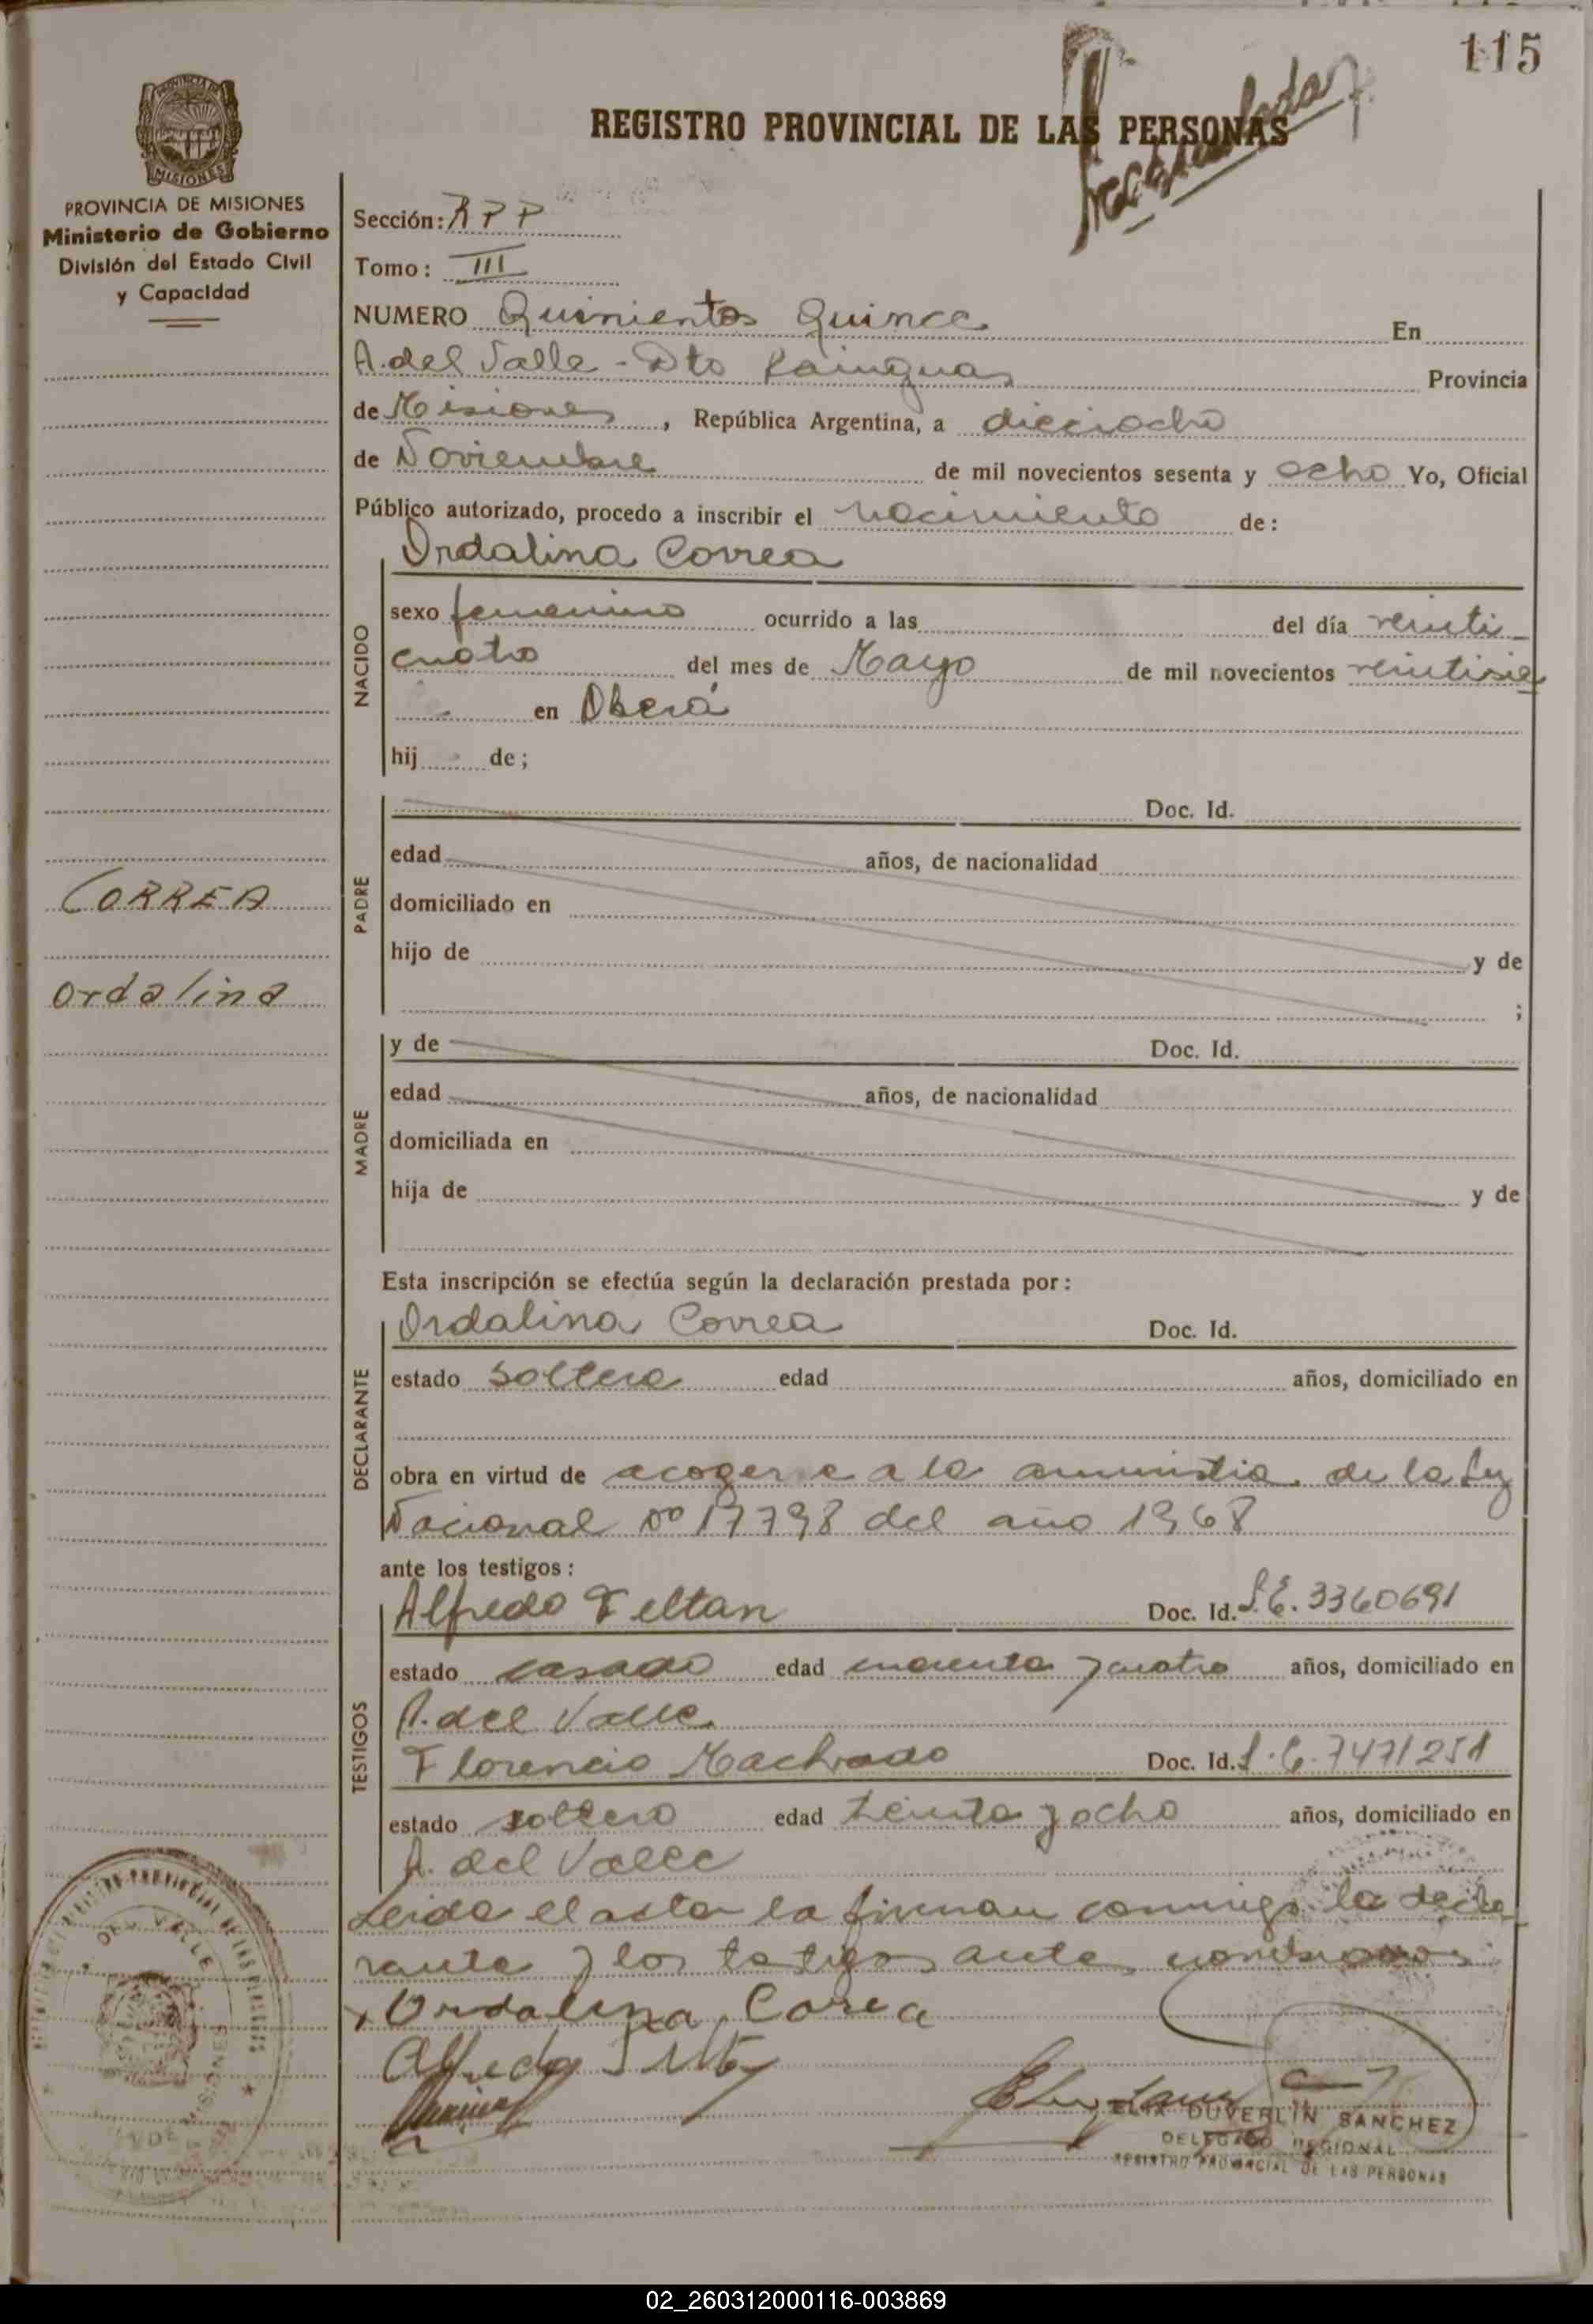 115
REGISTRO PROVINCIAL DE LAS PERSONAS
PROVINCIA DE MISIONES
Ministerio de Gobierno
División del Estado Civil
y Capacidad
Sección: RPP
Tomo: III
NUMERO Quinientos Quince En
A. del Valle - Dto Kainguas Provincia
de Misiones, República Argentina, a dieciocho
de Noviembre de mil novecientos sesenta y ocho Yo, Oficial
Público autorizado, procedo a inscribir el nacimiento de:
NACIDO
Ordalina Correa
sexo femenino ocurrido a las del día veinti
cuatro del mes de Mayo de mil novecientos veintisie
en Oberá
hij de;
PADRE
Doc. Id.
edad años, de nacionalidad
domiciliado en
hijo de y de
;
CORREA
Ordalina
MADRE
y de Doc. Id.
edad años, de nacionalidad
domiciliada en
hija de y de
Esta inscripción se efectúa según la declaración prestada por:
DECLARANTE
Ordalina Correa Doc. Id.
estado soltera edad años, domiciliado en
obra en virtud de acogerse a la amnistia de la Ley
Nacional nº 17798 del año 1968
ante los testigos:
TESTIGOS
Alfredo Feltan Doc. Id. L.E. 3360691
estado casado edad cuarenta y cuatro años, domiciliado en
A. del Valle
Florencio Machado Doc. Id. L.E. 7471251
estado soltero edad treinta y ocho años, domiciliado en
A. del Valle
Leida el acta la firman conmigo la decla
rante y los testigos ante
Ordalina Corea
Alfredo
DUVERLIN SANCHEZ
DELEGADO REGIONAL
REGISTRO PROVINCIAL DE LAS PERSONAS
DEL VALLE
MISIONES
02_260312000116-003869